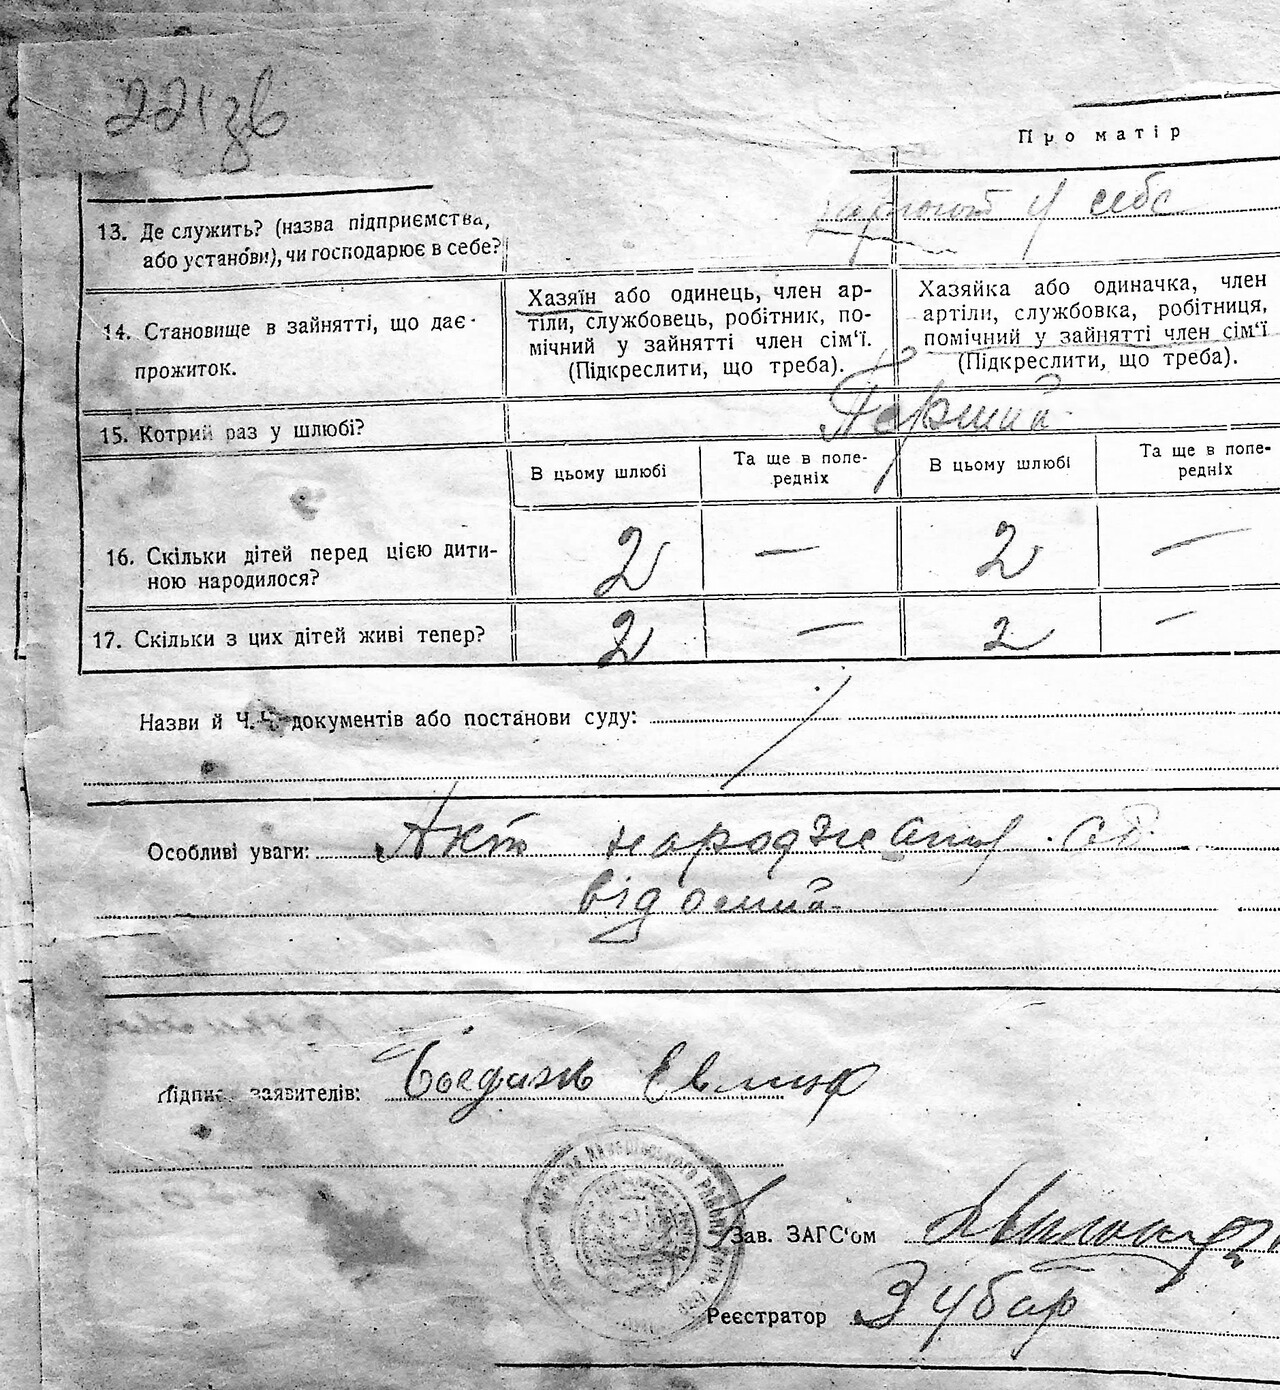 221зв
Про матір
13. Де служить? (назва підприємства,
або установи), чи господарює в себе?
у себе
14. Становище в зайнятті, що дає
прожиток.
Хазяїн або одинець, член ар-
тіли, службовець, робітник, по-
мічний у зайнятті член сім'ї.
(Підкреслити, що треба).
Хазяйка або одиначка, член
артіли, службовка, робітниця,
помічний у зайнятті член сім'ї
(Підкреслити, що треба).
15. Котрий раз у шлюбі?
Перший
В цьому шлюбі
Та ще в попе-
редніх
В цьому шлюбі
Та ще в попе-
редніх
16. Скільки дітей перед цією дити-
ною народилося?
2 — 2 —
17. Скільки з цих дітей живі тепер?
2 — 2 —
Назви й Ч.Ч. документів або постанови суду:
Особливі уваги: Акт народження
відомий
Підпис заявителів:
Зав. ЗАГС'ом
Реєстратор Зубар